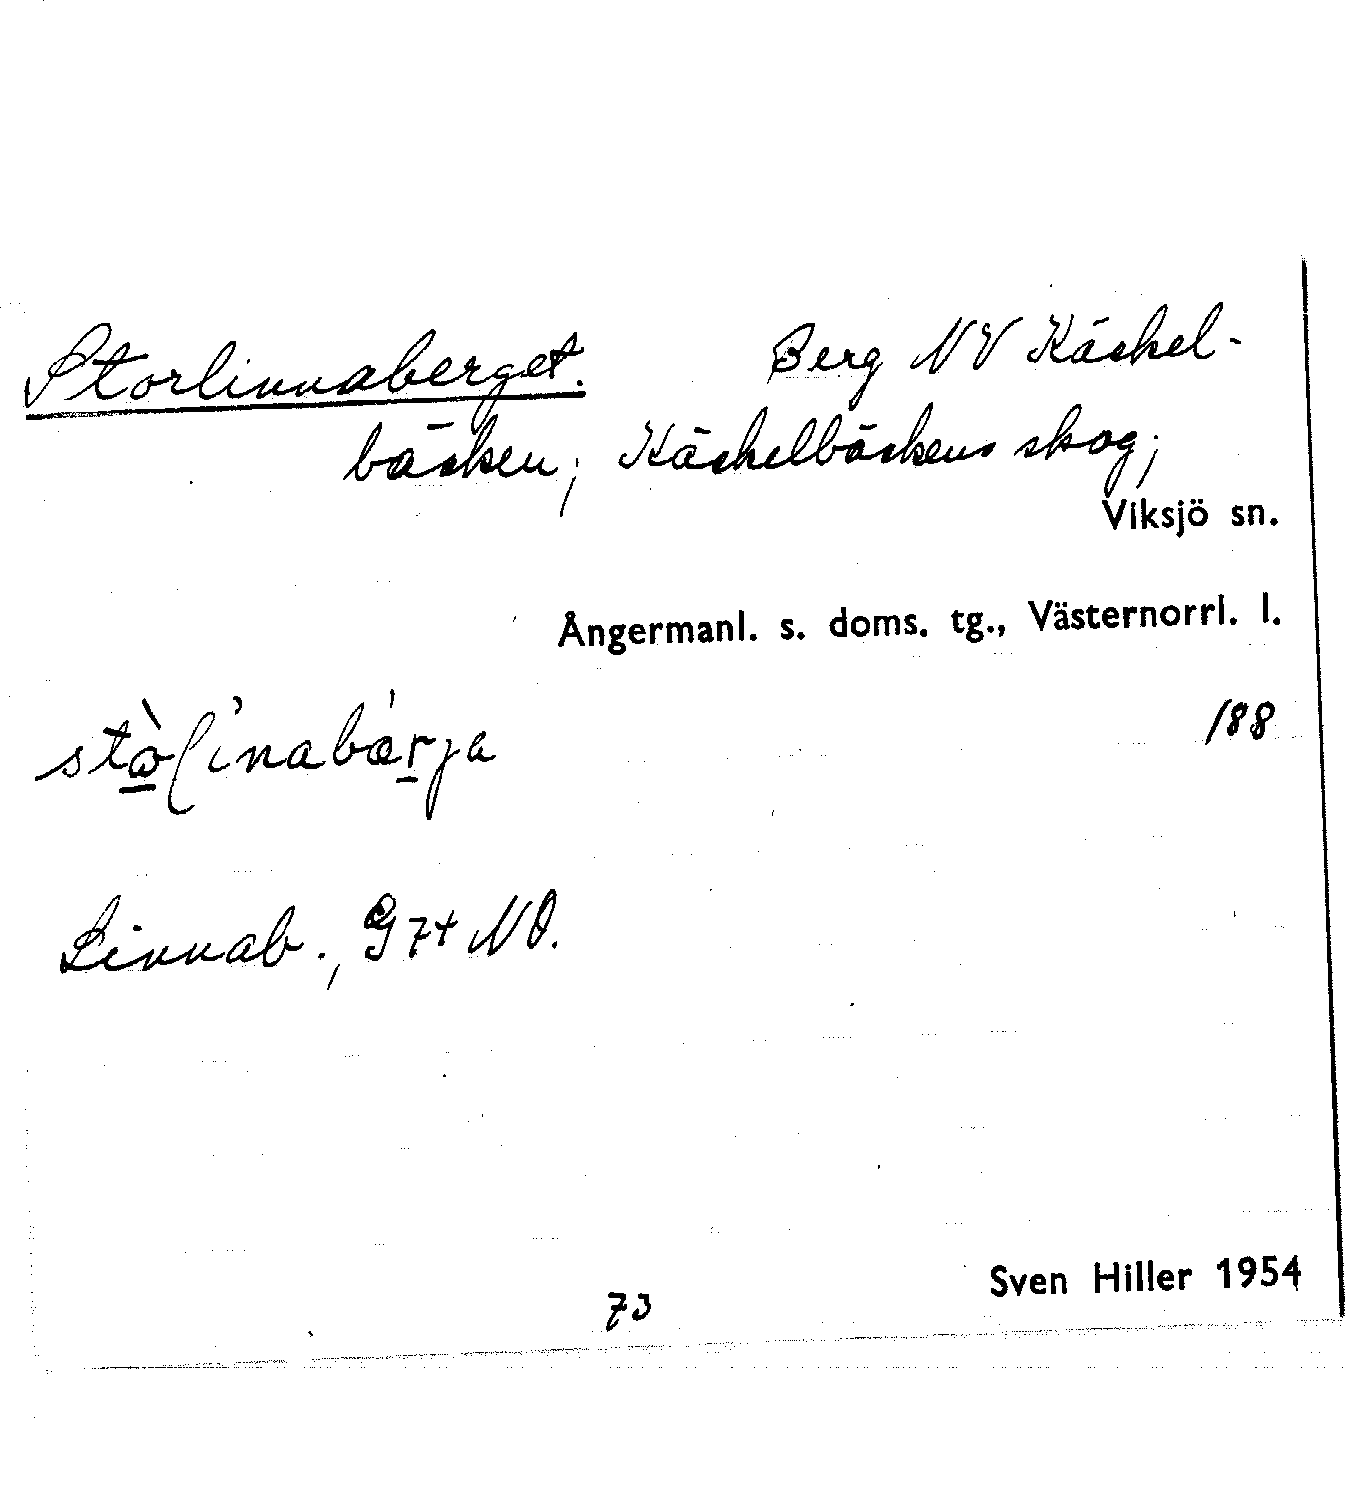 Storlinnaberget. Berg NV Käckel-
bäcken; Käckelbäckens skog;
Viksjö sn.
Ångermanl. s. doms. tg., Västernorrl. l.
188
Linnab., G 7+ NO.
73
Sven Hiller 1954